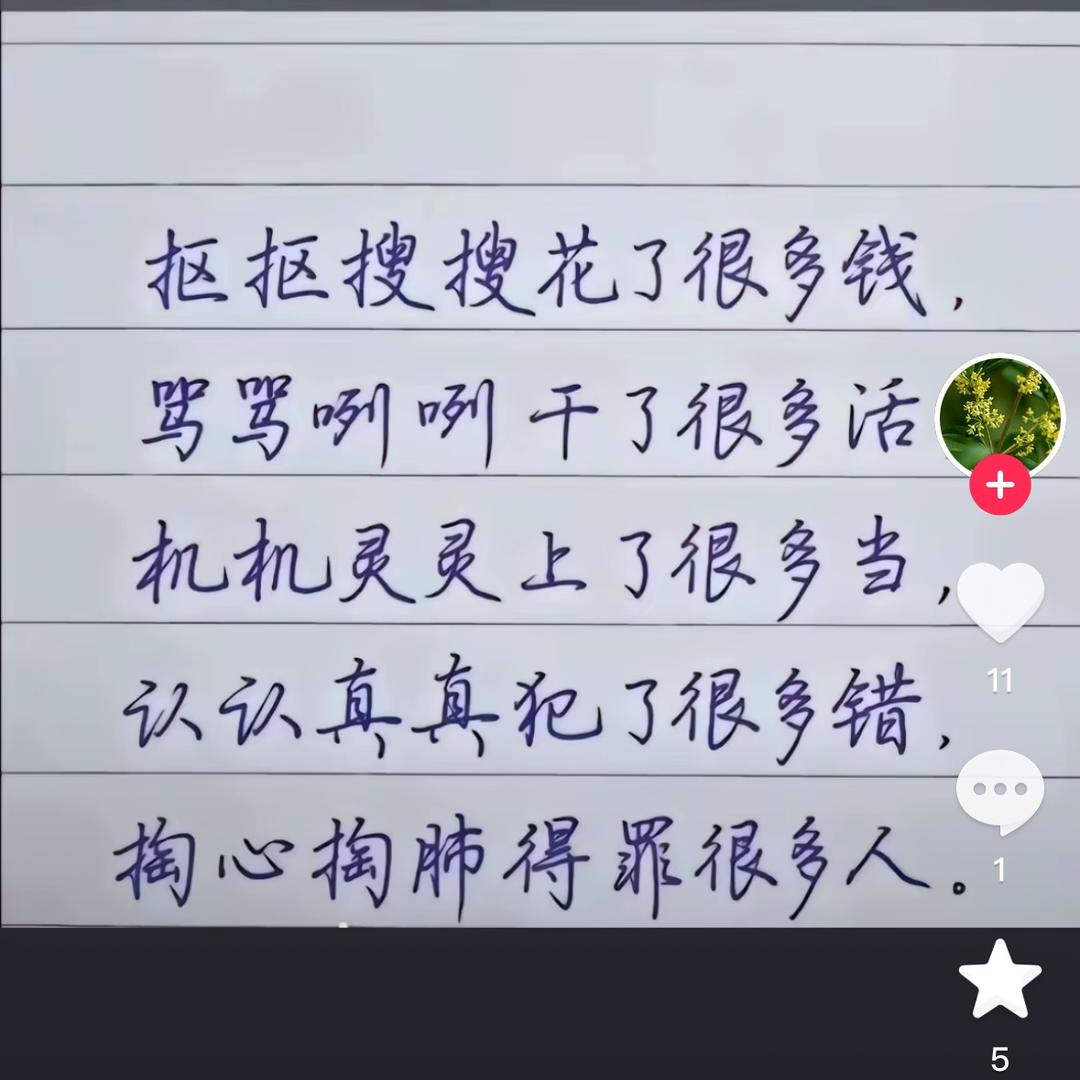 抠抠搜搜花了很多钱，
骂骂咧咧干了很多活
机机灵灵上了很多当，
认认真真犯了很多错，
掏心掏肺得罪很多人。
11
1
5